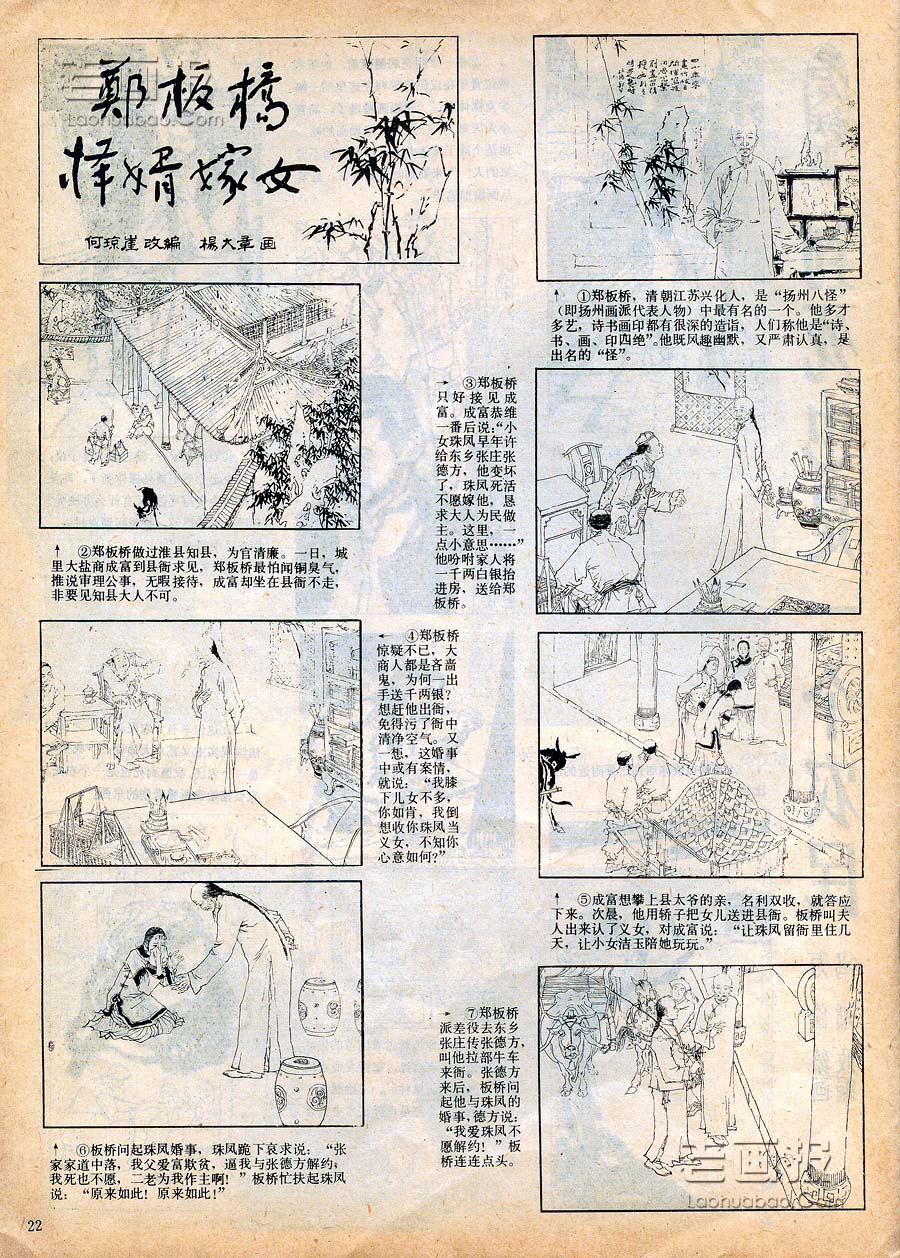 郑板橋
择婿嫁女
何琼崖改编 楊大章画
老画报
Laohuabao.Com
↑ ①郑板桥，清朝江苏兴化人，是“扬州八怪”
（即扬州画派代表人物）中最有名的一个。他多才
多艺，诗书画印都有很深的造诣，人们称他是“诗、
书、画、印四绝”。他既风趣幽默，又严肃认真，是
出名的“怪”。
↑ ②郑板桥做过淮县知县，为官清廉。一日，城
里大盐商成富到县衙求见，郑板桥最怕闻铜臭气，
推说审理公事，无暇接待，成富却坐在县衙不走，
非要见知县大人不可。
→ ③郑板桥
只好接见成
富。成富恭维
一番后说：“小
女珠凤早年许
给东乡张庄张
德方，他变坏
了，珠凤死活
不愿嫁他，恳
求大人为民做
主。这里，一
点小意思……”
他吩咐家人将
一千两白银抬
进房，送给郑
板桥。
← ④郑板桥
惊疑不已，大
商人都是吝啬
鬼，为何一出
手送千两银？
想赶他出衙，
免得污了衙中
清净空气。又
一想，这婚事
中或有案情，
就说：“我膝
下儿女不多，
你如肯，我倒
想收你珠凤当
义女，不知你
心意如何？”
↑ ⑤成富想攀上县太爷的亲，名利双收，就答应
下来。次晨，他用轿子把女儿送进县衙。板桥叫夫
人出来认了义女，对成富说：“让珠凤留衙里住几
天，让小女洁玉陪她玩玩。”
↑ ⑥板桥问起珠凤婚事，珠凤跪下哀求说：“张
家家道中落，我父爱富欺贫，逼我与张德方解约，
我死也不愿，二老为我作主啊！”板桥忙扶起珠凤
说：“原来如此！原来如此！”
→ ⑦郑板桥
派差役去东乡
张庄传张德方，
叫他拉部牛车
来衙。张德方
来后，板桥问
起他与珠凤的
婚事，德方说：
“我爱珠凤不
愿解约！”板
桥连连点头。
老画报
Laohuabao.Com
22